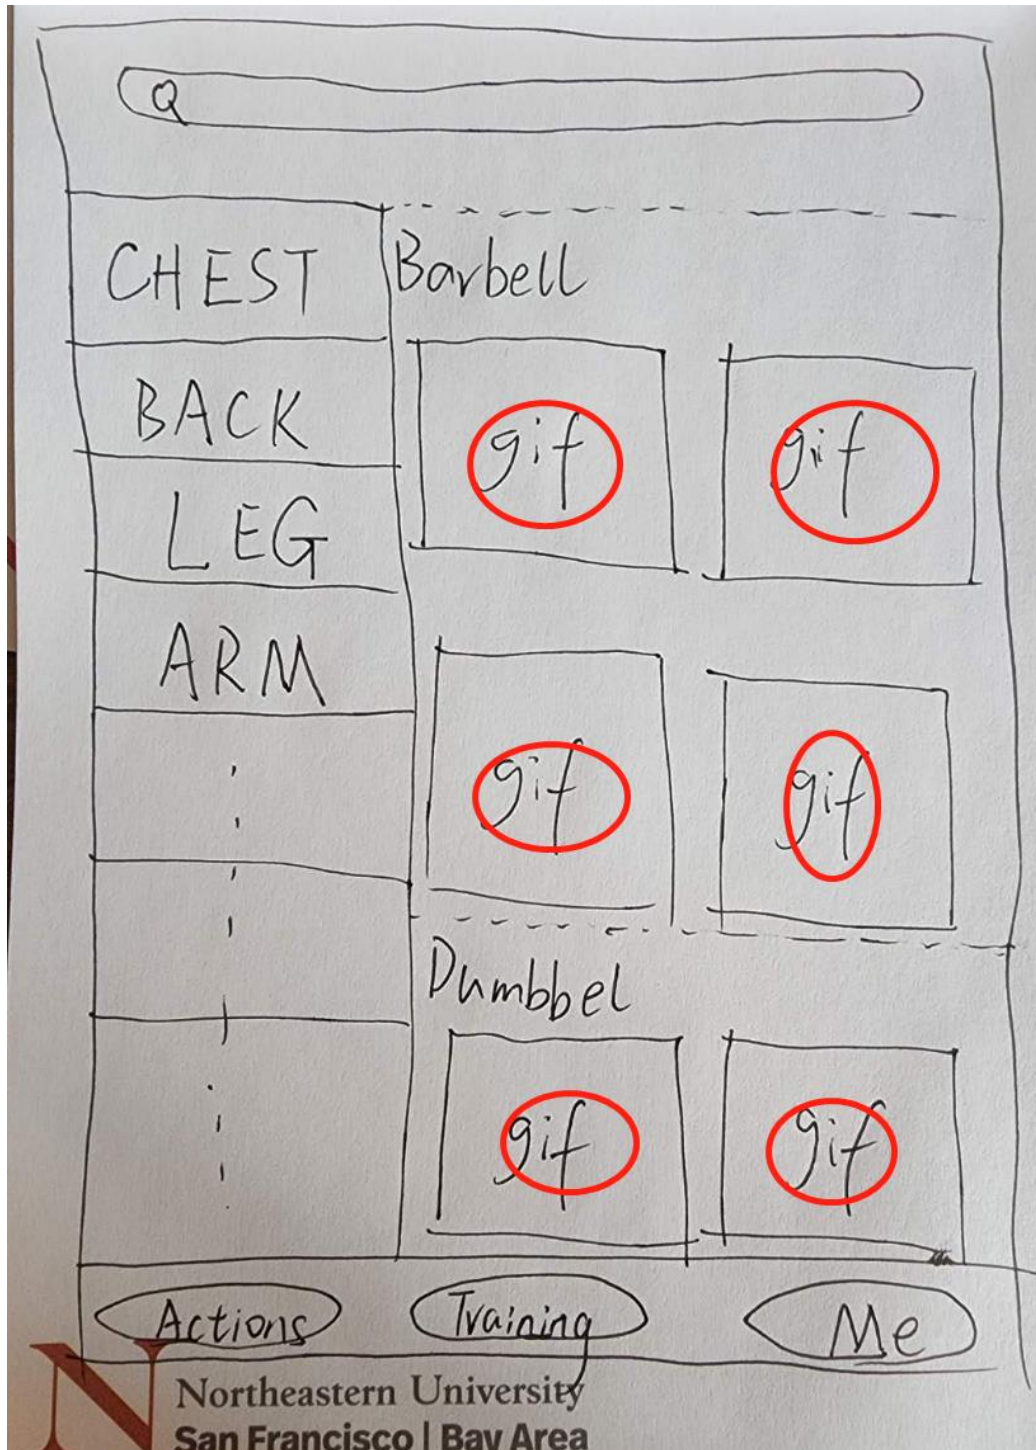 Q
CHEST
BACK
LEG
ARM
Barbell
gif gif
gif gif
Dumbbel
gif gif
Actions Training Me
N
Northeastern University
San Francisco | Bay Area